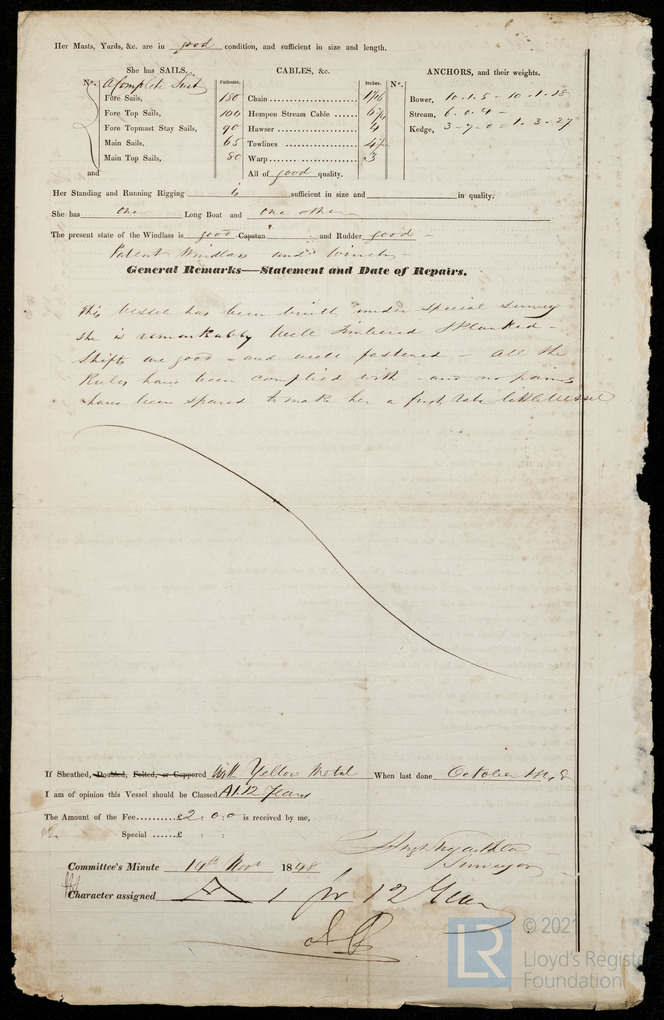 Her Masts, Yards, &c. are in good condition, and sufficient in size and length.
She has SAILS.
CABLES, &c.
ANCHORS, and their weights.
Nº.
A Complete Suit
Fathoms.
Inches.
Nº.
Fore Sails, 150
Fore Top Sails, 100
Fore Topmast Stay Sails, 90
Main Sails, 65
Main Top Sails, 80
and
Chain
Hempen Stream Cable
Hawser 4
Towlines
Warp 3
All of good quality.
Bower, 10.1.5 - 10.1.18
Stream, 6.0.4 -
Kedge, 3-7-0 - 1.3.27
Her Standing and Running Rigging is sufficient in size and in quality.
She has one Long Boat and one other
The present state of the Windlass is good Capstan and Rudder good -
Patent Windlass and Winch -
General Remarks—Statement and Date of Repairs.
This Vessel has been built under special survey
she is remarkably well Timbered & Planked -
Shifts are good - and well fastened - All the
Rules have been complied with - and no pains
have been spared to make her a first rate little Vessel
If Sheathed, Doubled, Felted, or Coppered with Yellow Metal When last done October
I am of opinion this Vessel should be Classed A1.12 Years
The Amount of the Fee.........£2 : 0 : 0 is received by me,
Special ......£ : :
Surveyor
Committee's Minute 14th Novr 1848
Character assigned A 1 for 12 Years
LR
© 2021
Lloyd's Register
Foundation